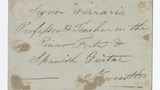 Signor Ferrari
Professor & Teacher on the
Piano Forte &
Spanish Guitar